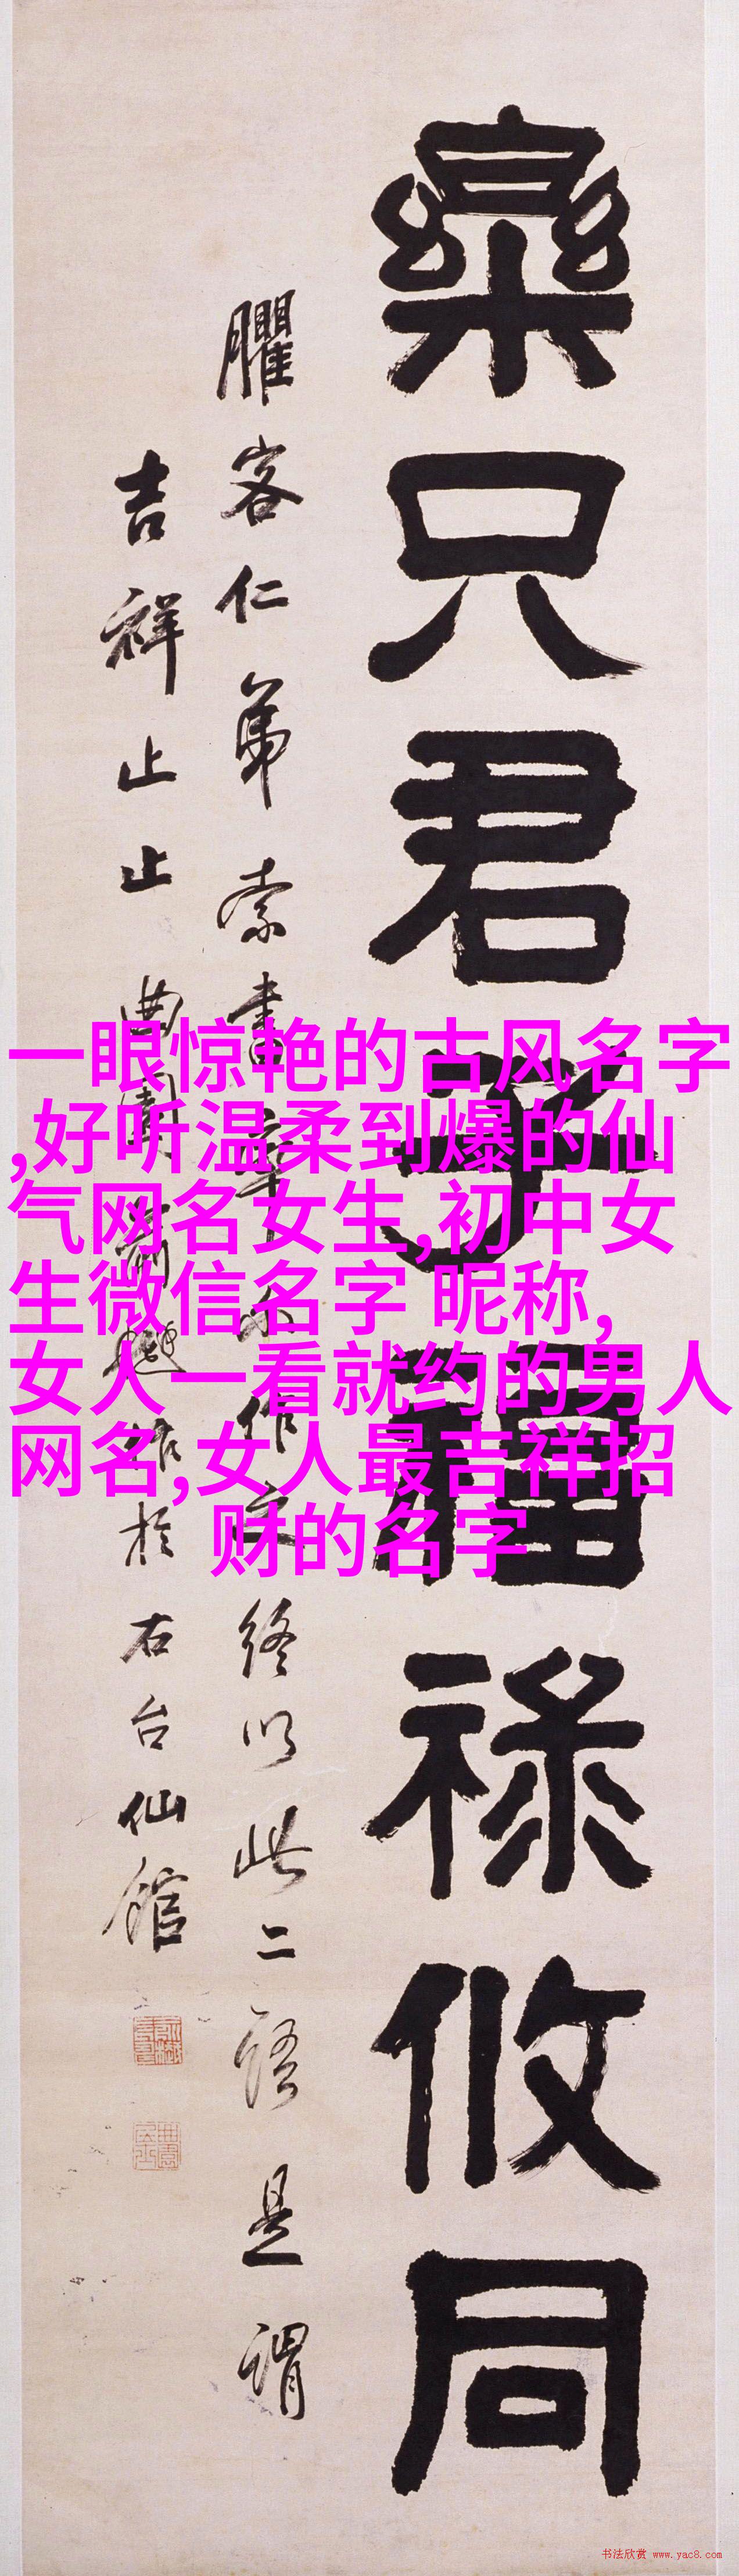 樂只君子福祿攸同
臞客仁弟索書作終以此二語是謂
吉祥止止曲園俞樾於右台仙館
一眼惊艳的古风名字
,好听温柔到爆的仙
气网名女生,初中女
生微信名字 昵称,
女人一看就约的男人
网名,女人最吉祥招
财的名字
书法欣赏 www.yac8.com